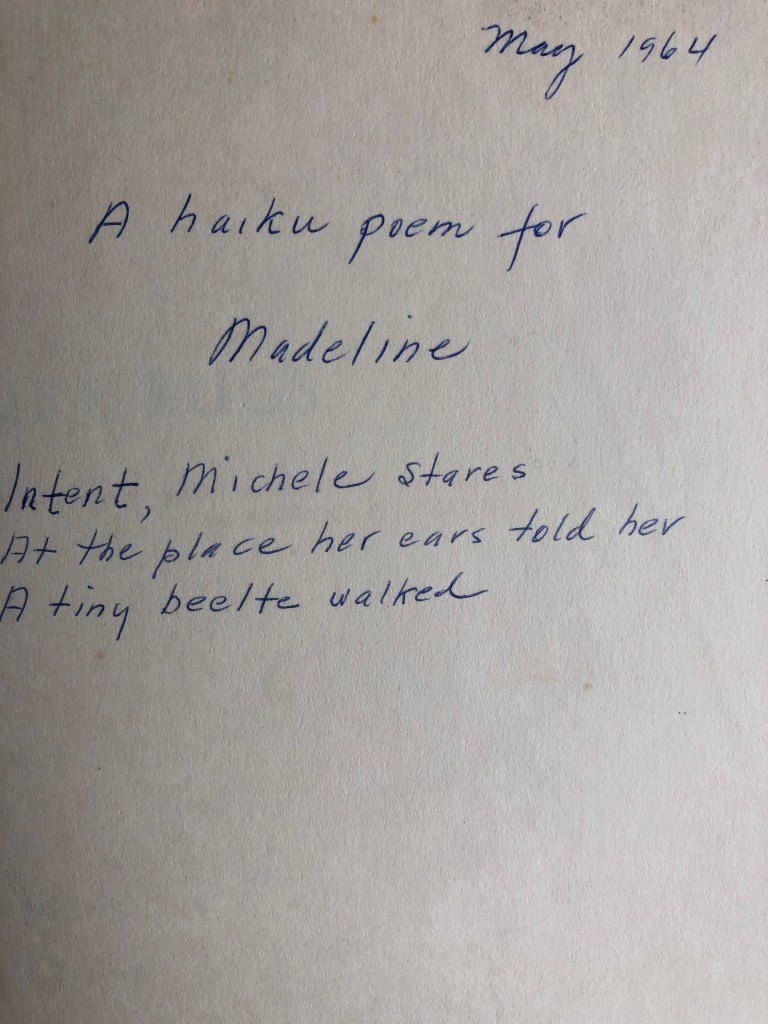 May 1964
A haiku poem for
Madeline
Intent, Michele stares
At the place her ears told her
A tiny beelte walked